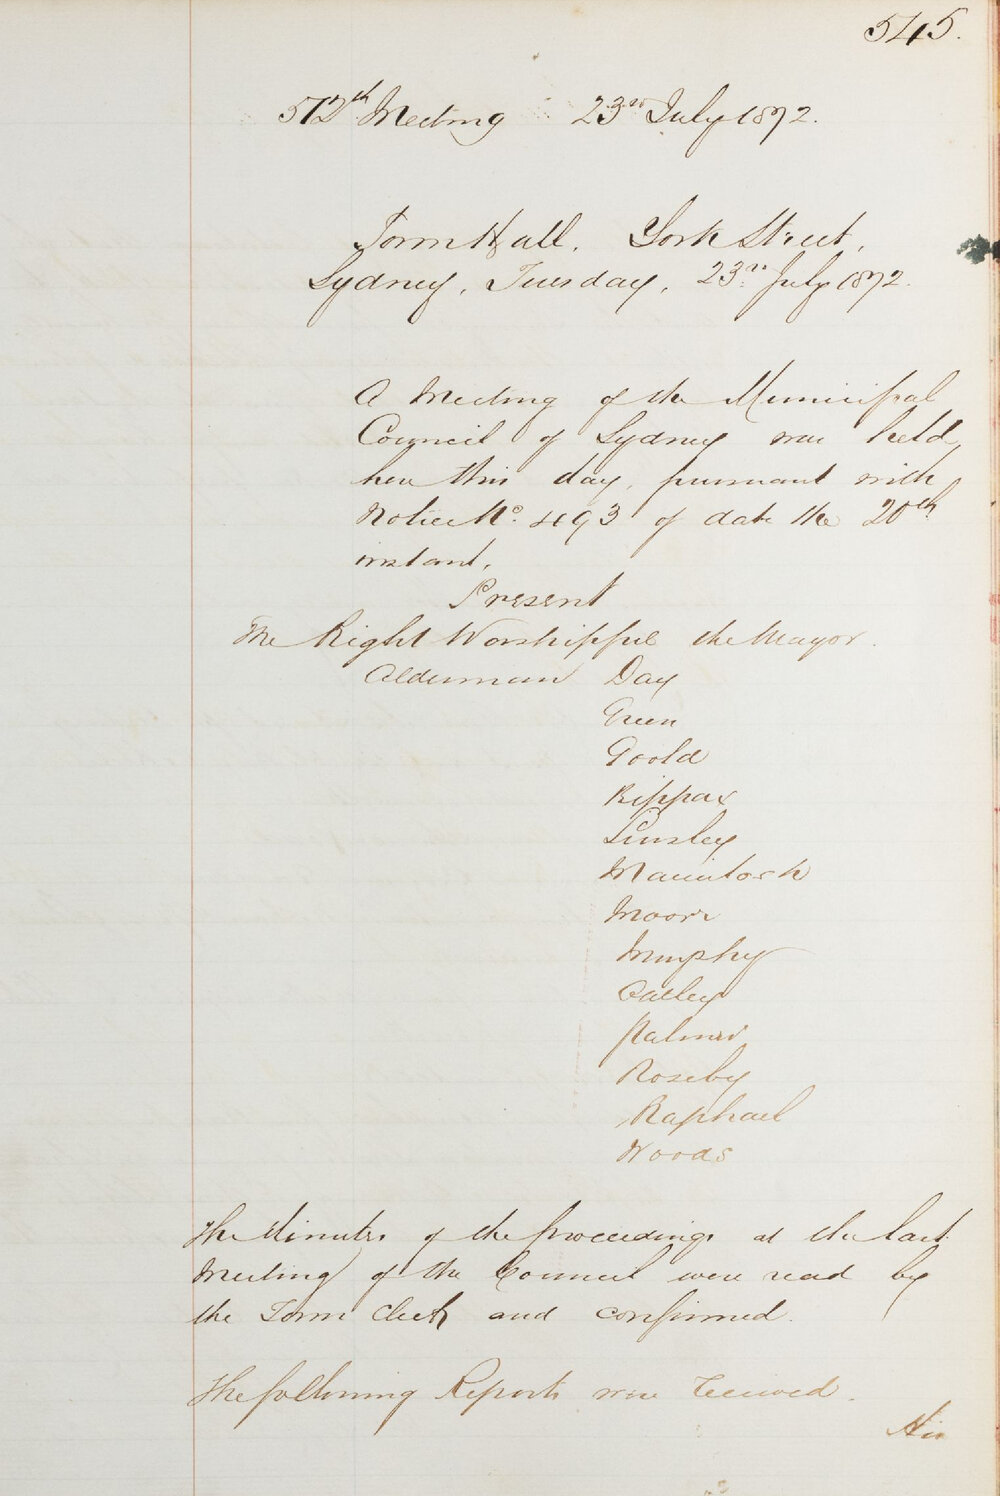 545.
512th Meeting 23rd July 1872.
Town Hall. York Street,
Sydney, Tuesday, 23rd July 1872.
A Meeting of the Municipal
Council of Sydney was held
here this day, pursuant with
Notice No. 493 of date the 20th
instant.
Present
The Right Worshipful the Mayor.
Alderman Day
Green
Goold
Kippax
Linsley
Macintosh
Moore
Murphy
Oatley
Palmer
Roseby
Raphael
Woods
The Minutes of the proceedings at the last
Meeting of the Council were read by
the Town Clerk and confirmed.
The following Reports were received.